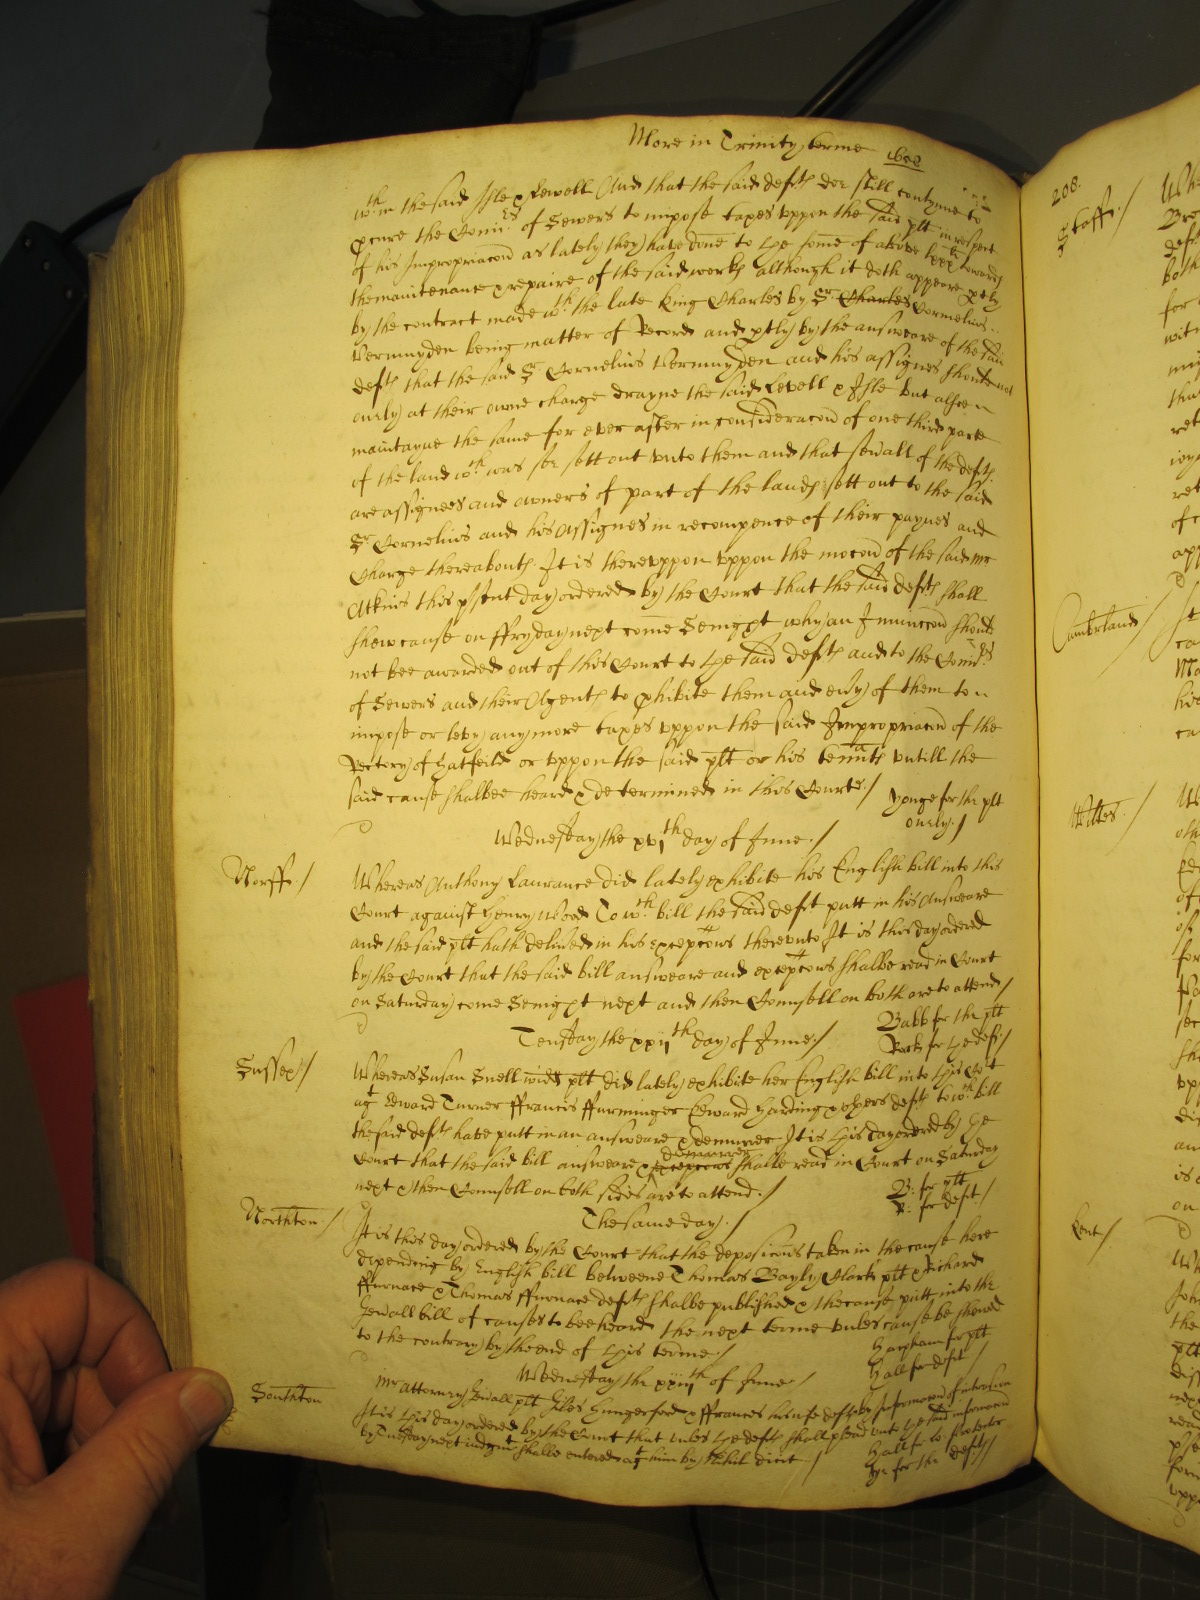 More in Trinity terme 1658
wth.in the said Isle & Levell And that the said defts doe still contynue to
pcure the Comrs. of Sewers to impose taxes uppon the said plt in respect
of his Impropriacon as lately they have done to the some of above lxxxli towards
the maintenance & repaire of the said works although it doth appeare ptly
by the contract made wth. the late King Charles by Sr. Charles Cornelius
Vermuyden being matter of Record and ptly by the answeare of the said
defts that the said Sr Cornelius Vermuyden and his assignes should not
onely at their owne charge drayne the said Levell & Isle but alsoe
maintayne the same for ever after in consideracon of one third parte
of the land wch. was soe sett out unto them and that sevall of the defts
are assignees and owners of part of the lands sett out to the said
Sr. Cornelius and his Assignes in recompence of their paynes and
Charge thereabouts. It is thereuppon uppon the mocon of the said Mr
Atkins this psent day ordered by the Court that the said defts shall
shew cause on ffryday next come Senight why an Iniunccon should
not bee awarded out of this Court to the said defts and to the Comrs.
of Sewers and their Agents to phibite them and evy of them to
impose or levy any more taxes uppon the said Impropriacon of the
Rectory of Hatfeild or uppon the said plt or his tennts untill the
said cause shalbee heard & determined in this Courte./
Yonge for the plt
onely./
Wednesday the xvith day of June./
Norff./
Whereas Anthony Laurance did lately exhibite his English bill into this
Court against Henry Wood To wch. bill the said deft putt in his Answeare
and the said plt hath delived in his excepcons thereunto It is this day ordered
by the Court that the said bill answeare and excepcons shalbe read in Court
on Saturday come Senight next and then Counsell on both are to attend/
Babb for the plt
for the def:/
Tuesday the xxijth day of June:/
Sussex:/
Whereas Susan Snell widd plt did lately exhibite her English bill into this Cort
agt Edward Turner ffrancis ffurminger Edward Harding & others defts to wch. bill
the said defts have putt in an answeare & demurrer It is this day ordered by the
Court that the said bill answeare & excepcons demurrer shalbe read in Court on Saturday
next & then Counsell on both sides are to attend./
B: for plt
R: for deft./
The same day./
Northton:/
It is this day ordered by the Court that the deposicons taken in the cause here
depending by English bill betweene Thomas Bayly Clark plt & Richard
ffurnace & Thomas ffurnace defts shalbe published & the cause putt into the
Genall bill of causes to bee heard the next terme unles cause be shewed
to the contrary by the end of this terme:/
Harpham for plt
Hall for deft./
Wednesday the xxiijth of June/
Southton
Mr Attorney Genall plt Giles Hungerford & ffrances his wife defts by Informacon of intrusion
It is this day ordered by the Court that unles the defts shall plead unto the said informacon
by Tuesday next iudgmt shalbe entered agt him by Nihil dicit /
Hall for to: protector
for the defts/
208.
Staff:/
Cumberland/
Wiltes./
Kent/